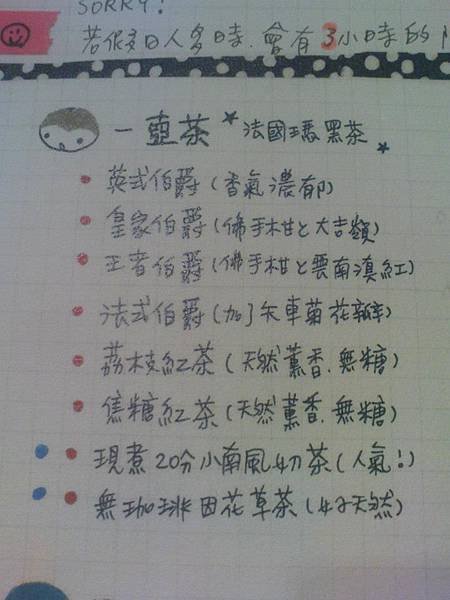 SORRY!
若假日人多時.會有3小時的
一壺茶 *法國瑪黑茶*
英式伯爵(香氣濃郁)
皇家伯爵(佛手柑と大吉嶺)
王者伯爵(佛手柑と雲南滇紅)
法式伯爵(加了矢車菊花瓣)
荔枝紅茶(天然薰香.無糖)
焦糖紅茶(天然薰香.無糖)
現煮20分小南風奶茶(人氣!)
無珈琲因花草茶(好天然)